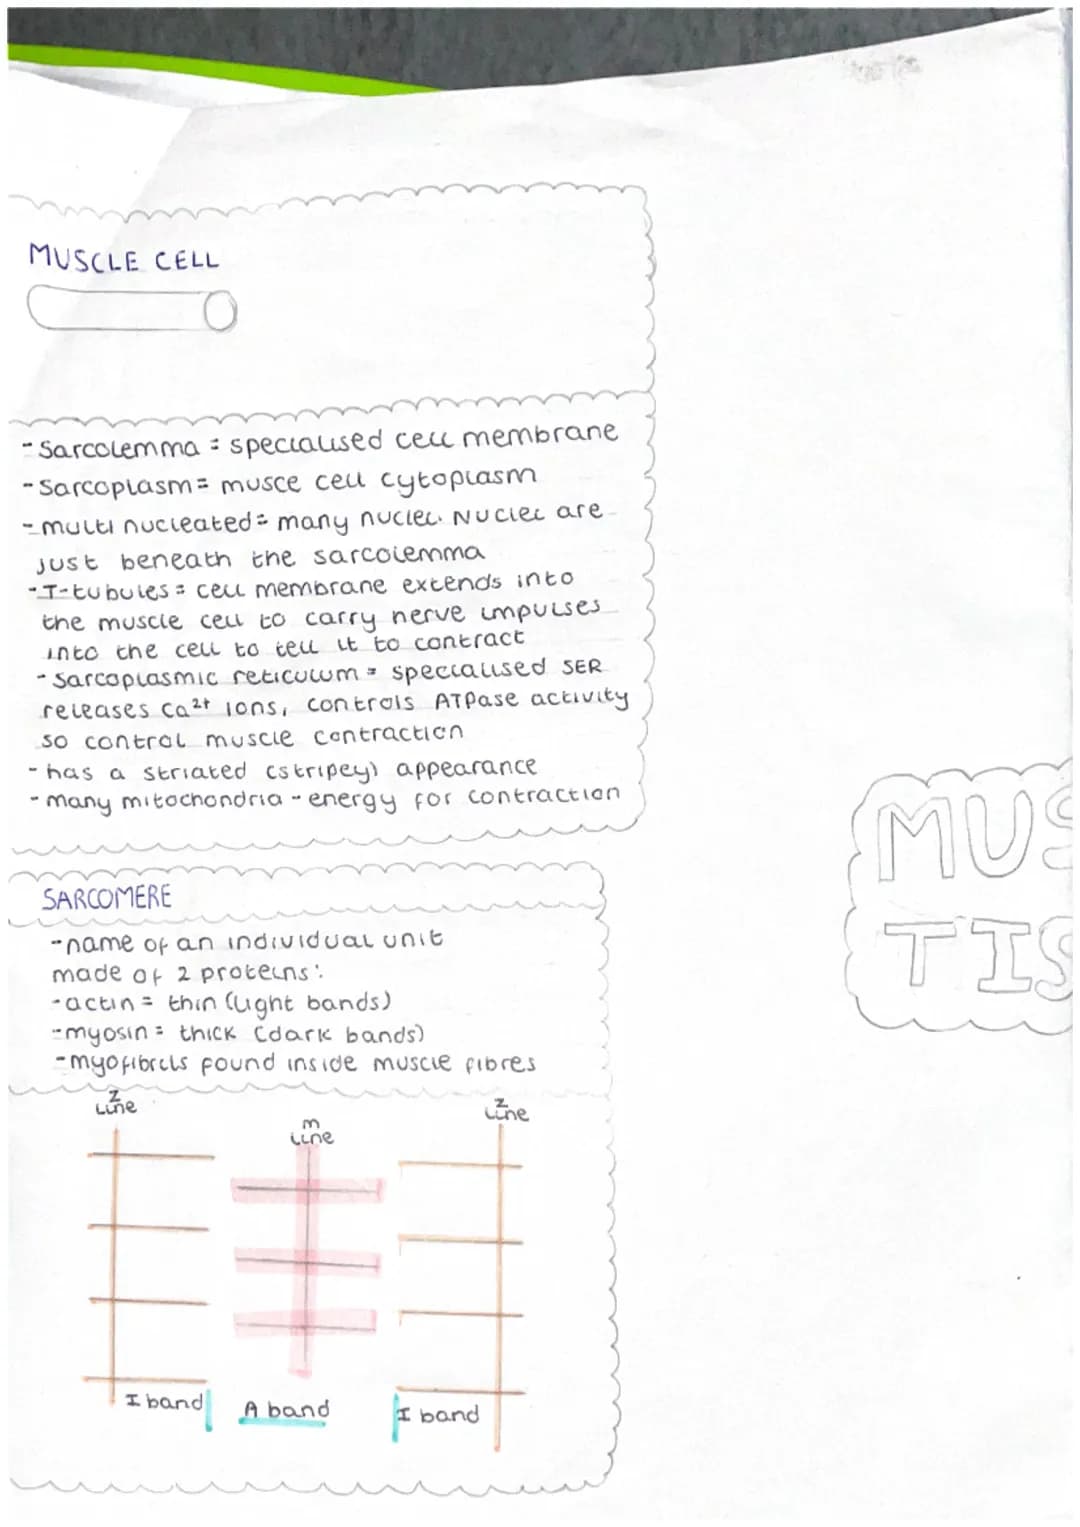 MUSCLE CELL
- Sarcolemma = specialised cell membrane
- Sarcoplasm = musce cell cytoplasm
- multi nucleated = many nuclei. Nuclei are
just beneath the sarcolemma
- T-tubules = cell membrane extends into
the muscle cell to carry nerve impulses
into the cell to tell it to contract
- Sarcoplasmic reticulum = specialised SER
releases Ca²⁺ ions, controls ATPase activity
so control muscle contraction
- has a striated (stripey) appearance
- many mitochondria - energy for contraction
MUS
TIS
SARCOMERE
- name of an individual unit
made of 2 proteins:
- actin = thin (light bands)
- myosin = thick (dark bands)
- myofibrils found inside muscle fibres
Z
Line
m
Line
Z
Line
I band
A band
I band